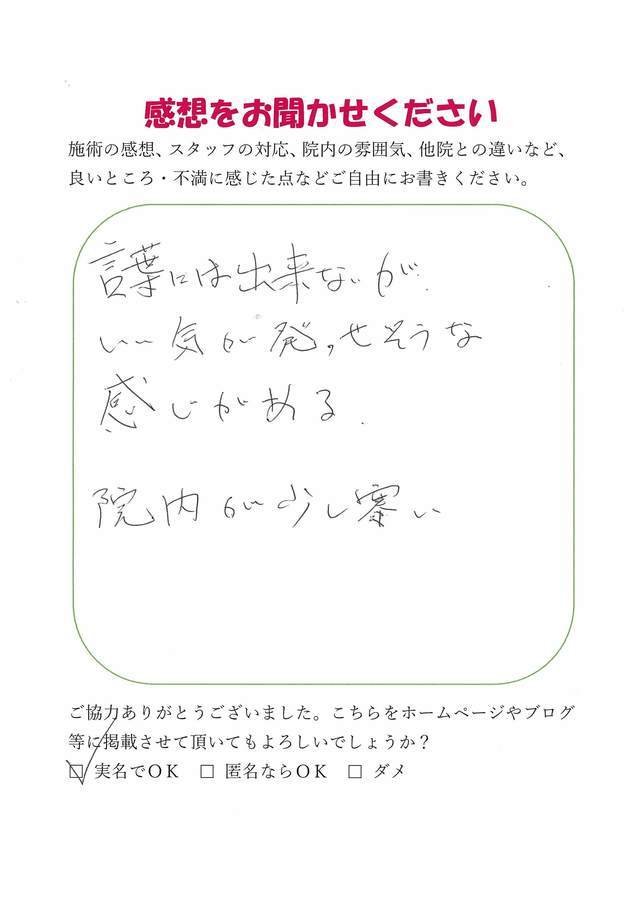 感想をお聞かせください
施術の感想、スタッフの対応、院内の雰囲気、他院との違いなど、
良いところ・不満に感じた点などご自由にお書きください。
言葉には出来ないが、
いい気が発っせそうな
感じがある.
院内が少し寒い
ご協力ありがとうございました。こちらをホームページやブログ
等に掲載させて頂いてもよろしいでしょうか？
□ 実名でＯＫ □ 匿名ならＯＫ □ ダメ